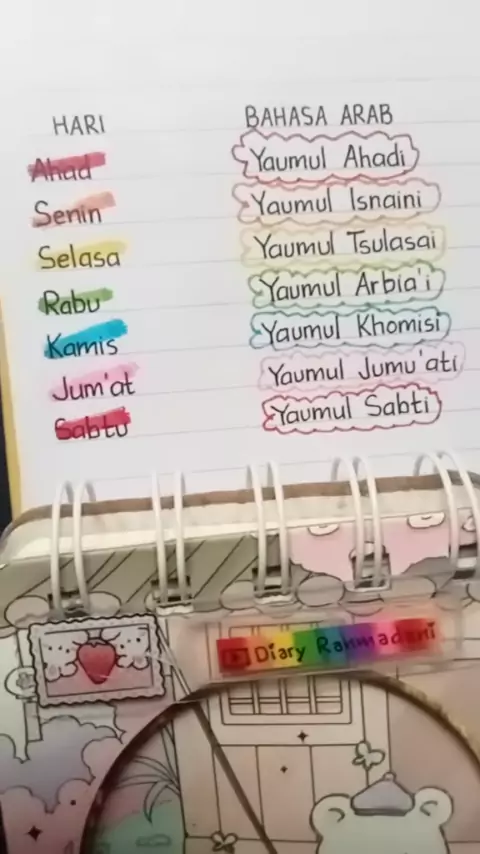 HARI BAHASA ARAB
Ahad Yaumul Ahadi
Senin Yaumul Isnaini
Selasa Yaumul Tsulasai
Rabu Yaumul Arbia'i
Kamis Yaumul Khomisi
Jum'at Yaumul Jumu'ati
Sabtu Yaumul Sabti
Diary Rahmadani